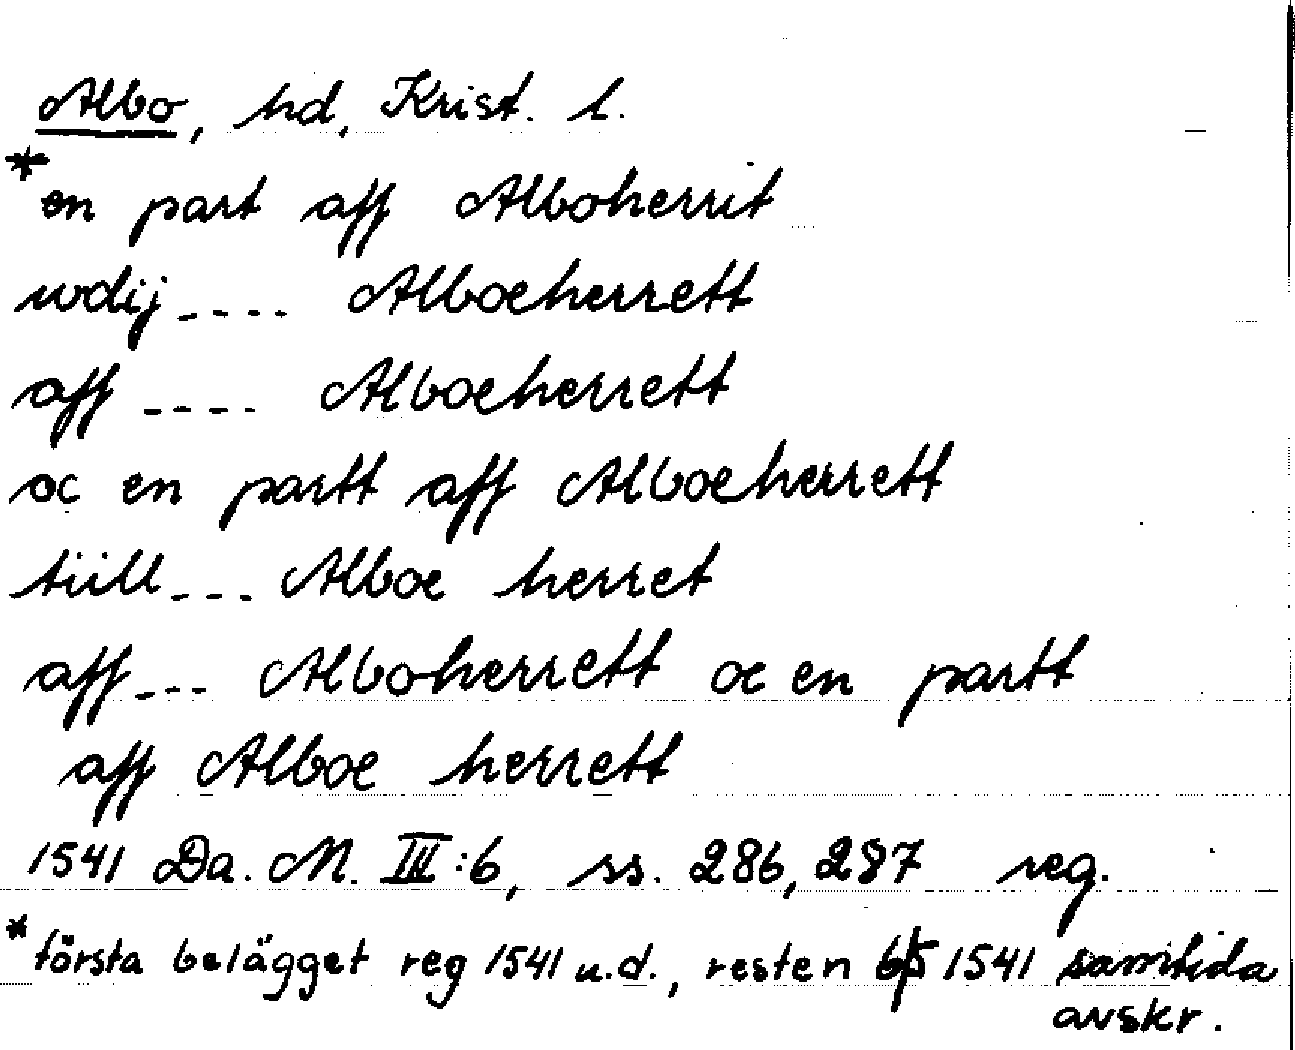 Albo, hd, Krist. l.
*en part aff Alboherrit
wdij ---- Alboeherrett
aff ---- Alboeherrett
oc en partt aff Alboeherrett
tiill --- Alboe herret
aff --- Alboherrett oc en partt
aff Alboe herrett
1541 Da. M. III:6, ss. 286, 287 reg.
*första belägget reg 1541 u.d., resten 6/5 1541 samtida
avskr.